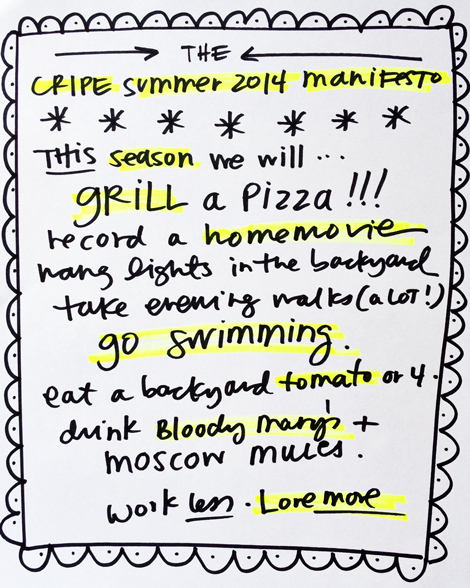 THE
CRIPE summer 2014 manIFESTO
THIS season we will ...
GRILL a PIZZA !!!
record a homemovie
hang lights in the backyard
take evening walks (a LOT!)
go swimming.
eat a backyard tomato or 4.
drink Bloody Mary's +
moscow mules.
work less. Love more